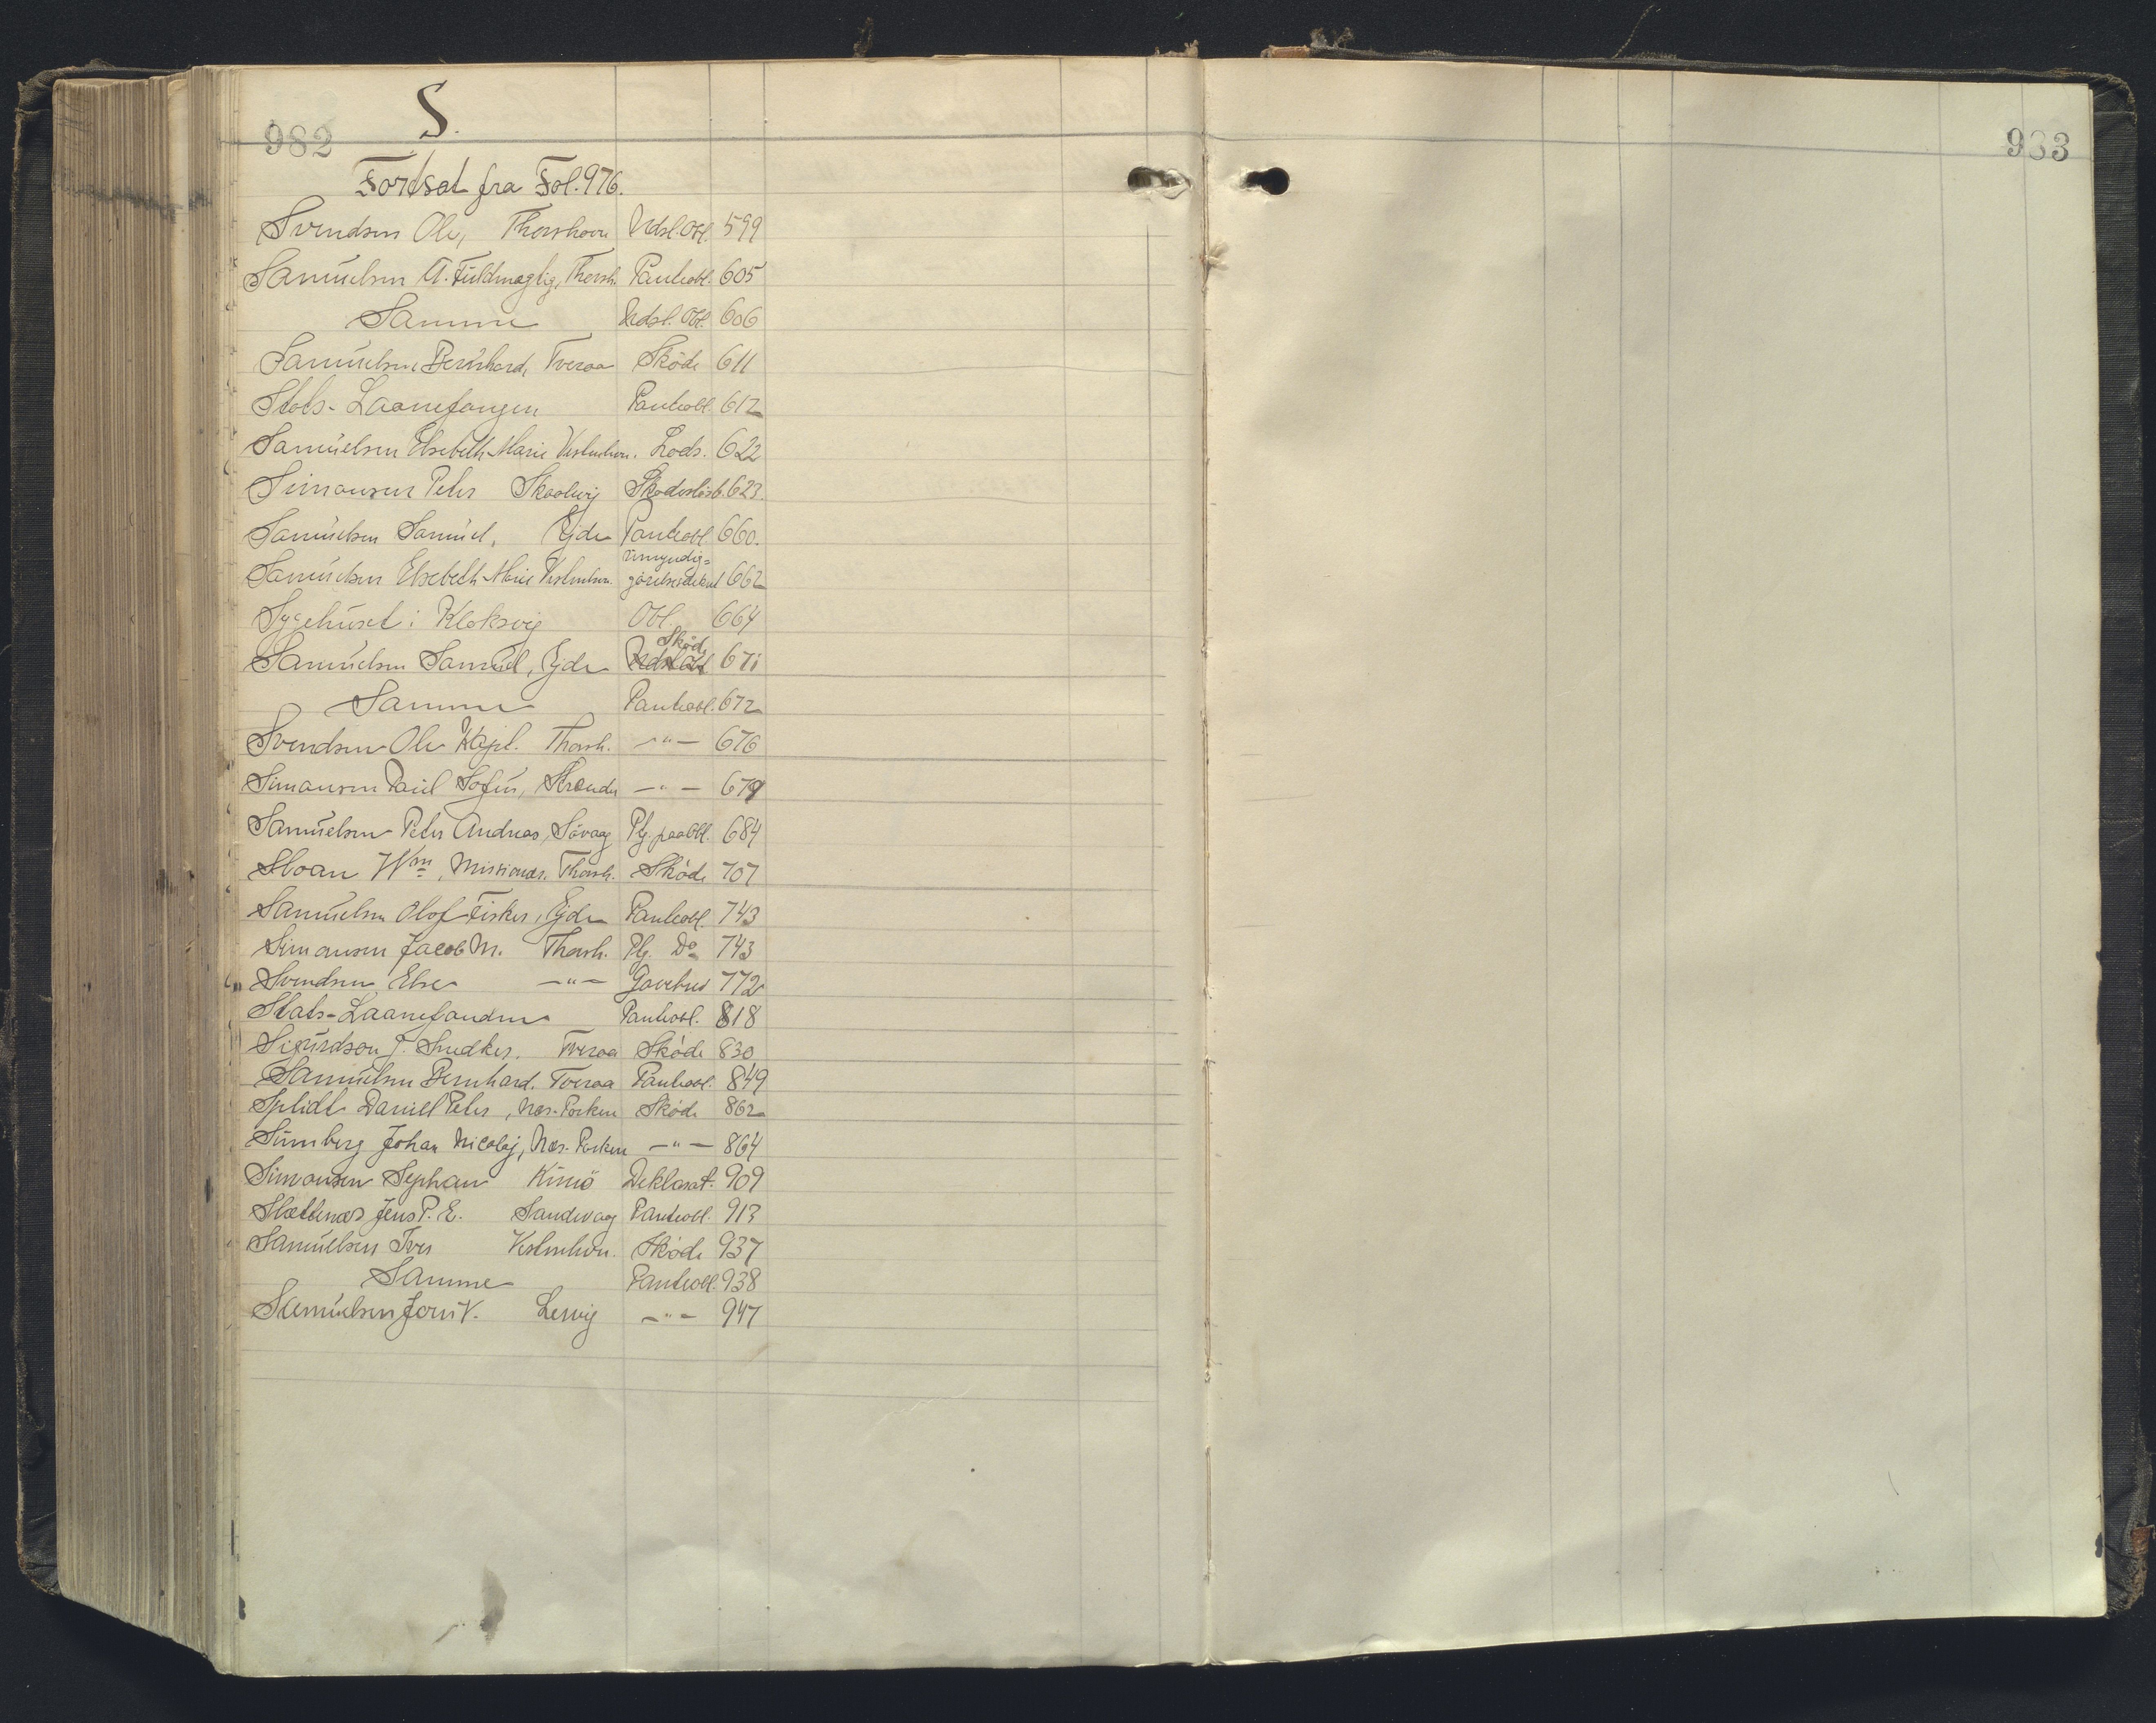 982
S.
933
Fortsat fra Fol. 976.
Svendsen Ole, Thorshavn Udsl. Obl. 599
Samuelsen A. Fuldmægtig, Thorsh. Panteobl. 605
Samme Udsl. Obl. 606
Samuelsen Bernhard, Tveraa Sköde 611
Stats-Laanefonden Panteobl. 612
Samuelsen Elsebeth Marie Vestmhvn. Lods. 622
Simonsen Peter Skaalevig 623.
Samuelsen Samuel, Ejde Panteobl. 660.
Umyndig=
Samuelsen Elsebeth Marie Vestmhvn. görelsesdekret 662
Sygehuset i Klaksvig Obl. 664
Sköde
Samuelsen Samuel, Ejde Udsl. Obl 671
Samme Panteobl. 672
Svendsen Ole Kapt. Thorsh. —"— 676
Simonsen Paul Sofus, Strender —"— 679
Samuelsen Peter Andreas, Sövaag Ptg. paa Obl. 684
Sloan Wm, Missionær. Thorsh. Sköde 707
Samuelsen Olof Fisker, Ejde Panteobl. 743
Simonsen Jacob M. Thorsh. Ptg. Do 743
Svendsen Else —"— Gavebrev 772
Stats-Laanefonden Panteobl. 818
Sigurdson J. Snedker. Tveraa Sköde 830
Samuelsen Bernhard. Tveraa Panteobl. 849
Splidt Daniel Peter, Næs-Porkere Sköde 862
Sumberg Johan Nicolaj, Næs-Porkere —"— 864
Simonsen Sephan Kunö Deklarat. 909
Slættenæs Jens P. E. Sandevaag Panteobl. 913
Samuelsen Iver Vestmhvn. Sköde 937
Samme Panteobl. 938
Samuelsen Joen V. Lervig —"— 947